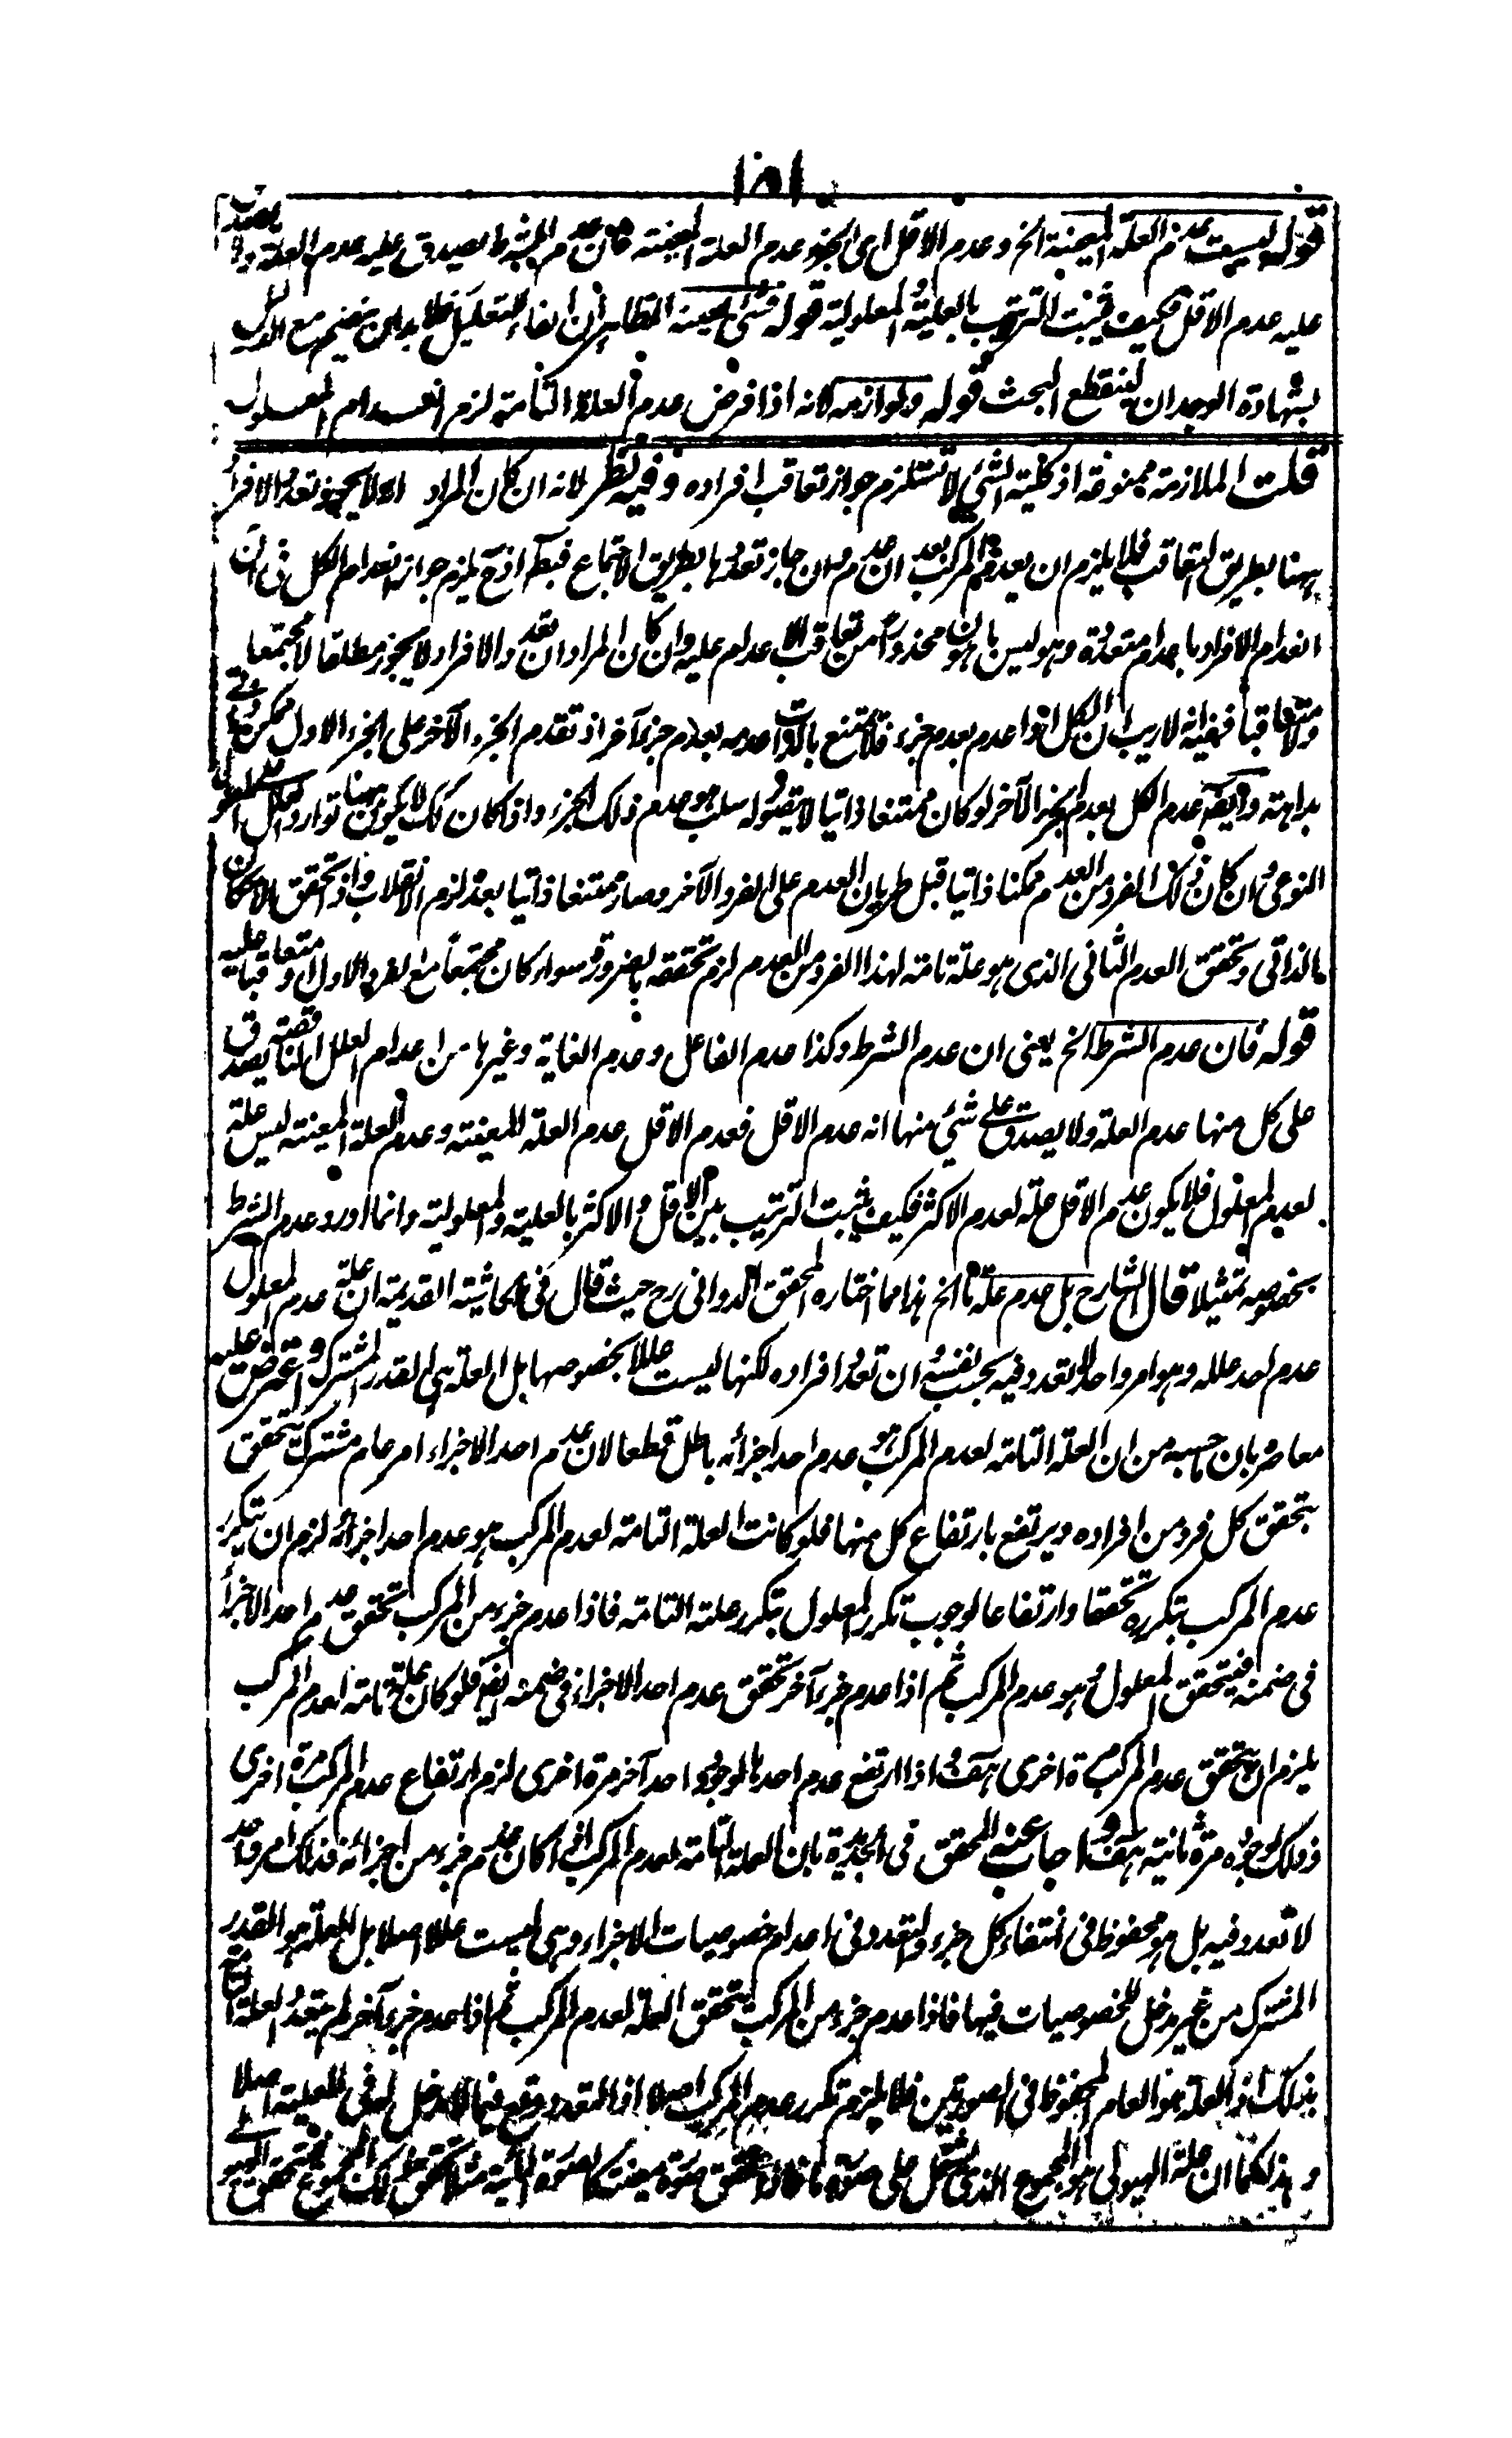 قوله ليست عدم العلة المعينة الخ وعدم الاقل اى الجزء عدم العلة المعينة فان عدم الشرط يصدق عليه عدم العلة ولا يصدق
عليه عدم الاقل فكيف يثبت الترتيب بالعلية والمعلولية قوله فشئ بعينه الظاهر ان الفاء للتعليل فلا بد ان ينضم مع الدليل
بشهادة الوجدان لينقطع البحث قوله ولوازمه لانه اذا فرض عدم العلة التامة لزم انعدام المعلول
قلت الملازمة ممنوعة اذ كلية الشئ لا تستلزم جواز تعاقب افراده وفيه نظر لانه ان كان المراد انه لا يجوز تعدد الافراد
ههنا بطريق التعاقب فلا يلزم ان يعدم المركب بعد ان عدم وان جاز تعددها بطريق الاجتماع فبطلانه اذ ح يلزم جواز انعدام الكل فى آن
انعدام الافراد باعدام متعددة وهو ليس باهون محذورا من تعاقب الاعدام عليه وان كان المراد ان تعدد الافراد لا يجوز مطلقا لا مجتمعا
ولا متعاقبا ففيه انه لا ريب ان الكل اذا عدم بعدم جزء فلا يمتنع بالذات عدمه بعدم جزء آخر اذ تقدم الجزء الآخر على الجزء الاول ممكن
بداهة وايضا عدم الكل بعدم الجزء الآخر لو كان ممتنعا ذاتيا لا يتصور له سلب هو عدم ذلك الجزء واذا كان كك لا يكون ههنا توارد العلل على المعلول
النوعى وان كان ذلك الفرد من العدم ممكنا ذاتيا قبل طريان العدم على الفرد الآخر وصار ممتنعا ذاتيا بعده لزم الانقلاب واذ تحقق الامكان
الذاتى وتحقق العدم الثانى الذى هو علة تامة لهذا الفرد من العدم لزم تحققه بالضرورة سواء كان مجتمعا مع الفرد الاول او متعاقبا عليه
قوله فان عدم الشرط الخ يعنى ان عدم الشرط وكذا عدم الفاعل وعدم الغاية وغيرها من اعدام العلل الناقصة يصدق
على كل منها عدم العلة ولا يصدق على شئ منها انه عدم الاقل فعدم الاقل عدم العلة المعينة وعدم العلة المعينة ليس علة
لعدم المعلول فلا يكون عدم الاقل علة لعدم الاكثر فكيف يثبت الترتيب بين الاقل والاكثر بالعلية والمعلولية وانما اورد عدم الشرط
بخصوصه تمثيلا قال الشارح بل عدم علة ما الخ هذا مما اختاره المحقق الدوانى رح حيث قال فى الحاشية القديمة ان علة عدم المعلول
عدم احد علله وهو امر واحد لا تعدد فيه بحسب نفسه وان تعدد افراده لكنها ليست عللا بخصوصها بل العلة هى القدر المشترك واعترض عليه
معاصره بان ما حسبه من ان العلة التامة لعدم المركب هو عدم احد اجزائه باطل قطعا لان عدم احد الاجزاء امر عام مشترك يتحقق
بتحقق كل فرد من افراده ويرتفع بارتفاع كل منها فلو كانت العلة التامة لعدم المركب هو عدم احد اجزائه لزم ان يتكرر
عدم المركب بتكرره تحققا وارتفاعا لوجوب تكرر المعلول بتكرر علته التامة فاذا عدم جزء من المركب تحقق عدم احد الاجزاء
فى ضمنه فيتحقق المعلول وهو عدم المركب ثم اذا عدم جزء آخر تحقق عدم احد الاجزاء فى ضمنه ايضا فلو كان علة تامة لعدم المركب
يلزم ان يتحقق عدم المركب مرة اخرى هف واذا ارتفع عدم احدها لوجود واحد آخر مرة اخرى لزم ارتفاع عدم المركب مرة اخرى
وذلك لوجوده مرة ثانية هف واجاب عنه المحقق فى الجديدة بان العلة التامة لعدم المركب اذا كان عدم جزء من اجزائه فذلك امر واحد
لا تعدد فيه بل هو محفوظ فى انتفاء كل جزء والتعدد فى اعدام خصوصيات الاجزاء وهى ليست عللا اصلا بل العلة هو القدر
المشترك من غير مدخل للخصوصيات فيها فاذا عدم جزء من المركب تحقق العلة لعدم المركب ثم اذا عدم جزء آخر لم يتعدد العلة التامة
بذلك اذ العلة هو العام المحفوظ فى الصورتين فلا يلزم تكرر عدم المركب اصلا اذ التعدد وقع فيما لا مدخل له فى العلية اصلا
وهذا كما ان علة الهيولى هو المجموع الذى يشتمل على صورة ما فاذا تحقق صورة معينة كالصورة المائية مثلا تحقق ذلك المجموع فيتحقق الهيولى